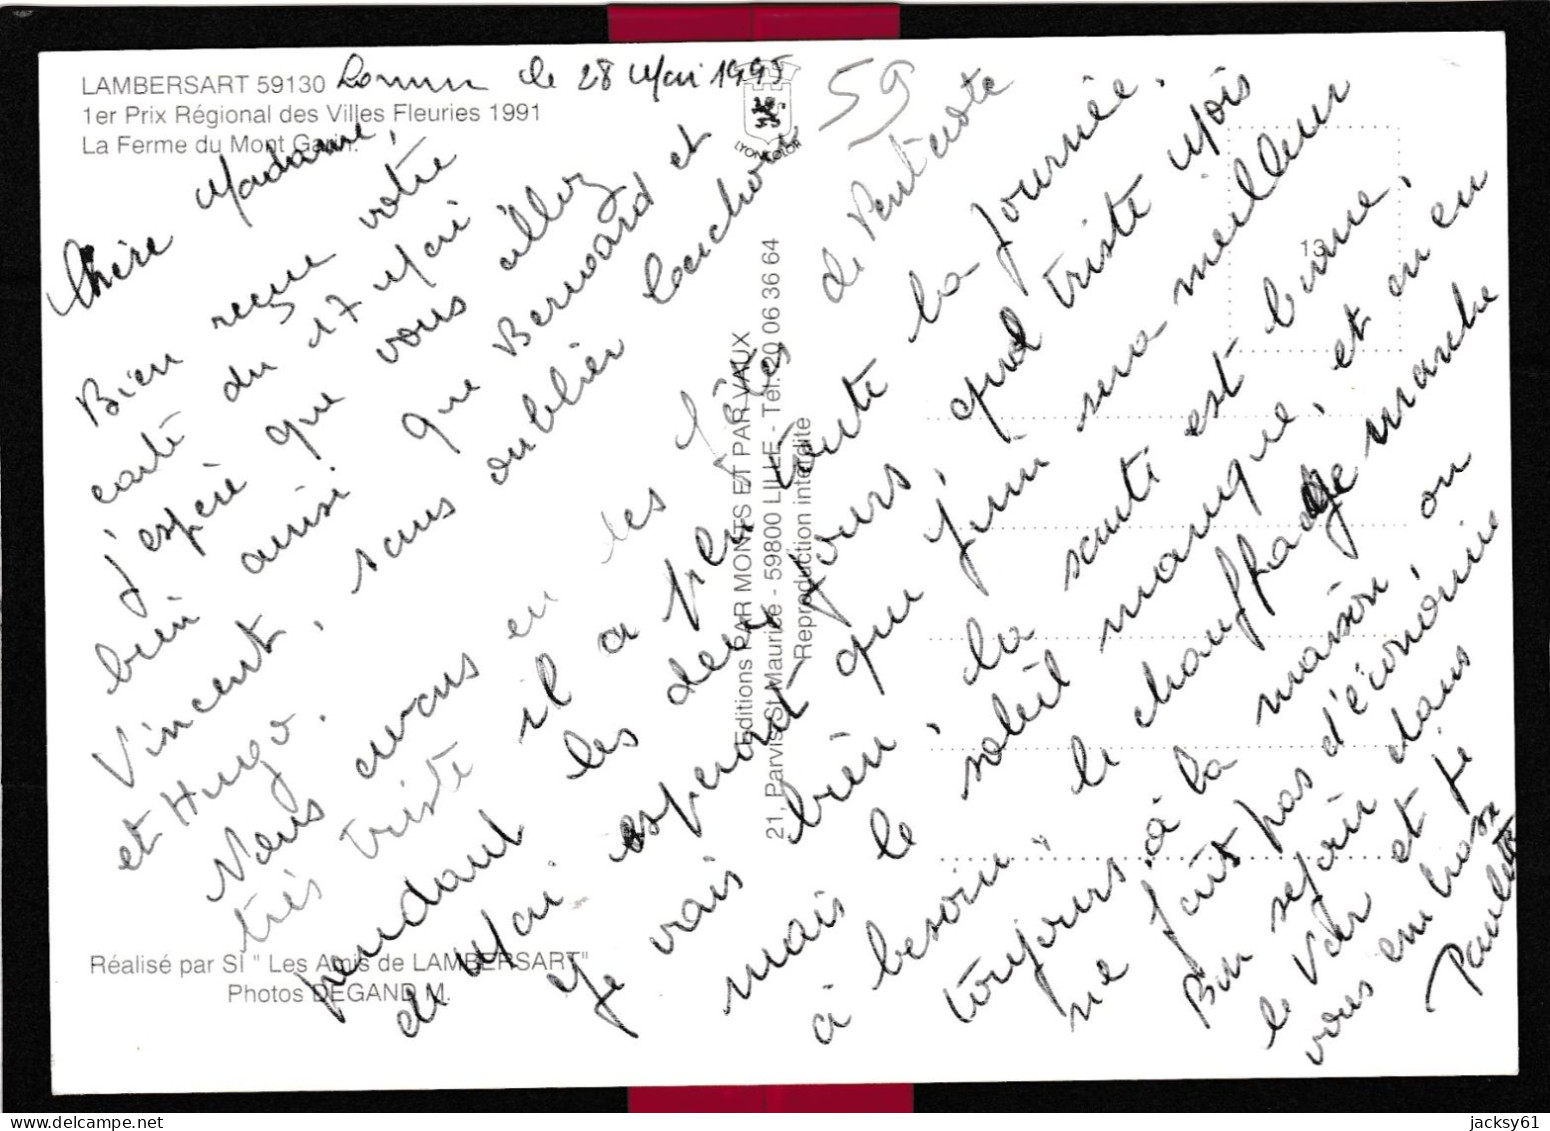 LAMBERSART 59130
1er Prix Régional des Villes Fleuries 1991
La Ferme du Mont Garin.
Lomme le 28 Mai 1995
59
LYONCOLOR
13
Chère Madame,
Bien reçue votre
carte du 17 Mai
j'espère que vous allez
bien ainsi que Bernard et
Vincent, sans oublier
et Hugo.
Nous avons eu les fêtes de Pentecote
très triste il a plu toute la journée.
pendant les deux jours, quel triste Mois
de Mai esperont que juin sera meilleur
Je vais bien, la santé est bonne,
mais le soleil manque, et on en
a besoin le chauffage marche
toujours à la maison, on
ne fait pas d'économie
Bon sejour dans
le Var et je
vous embrasse
Paulette
Editions PAR MONTS ET PAR VAUX
21, Parvis St Maurice - 59800 LILLE - Tél. 20 06 36 64
Reproduction interdite
Réalisé par SI " Les Amis de LAMBERSART"
Photos DEGAND M.
jacksy61